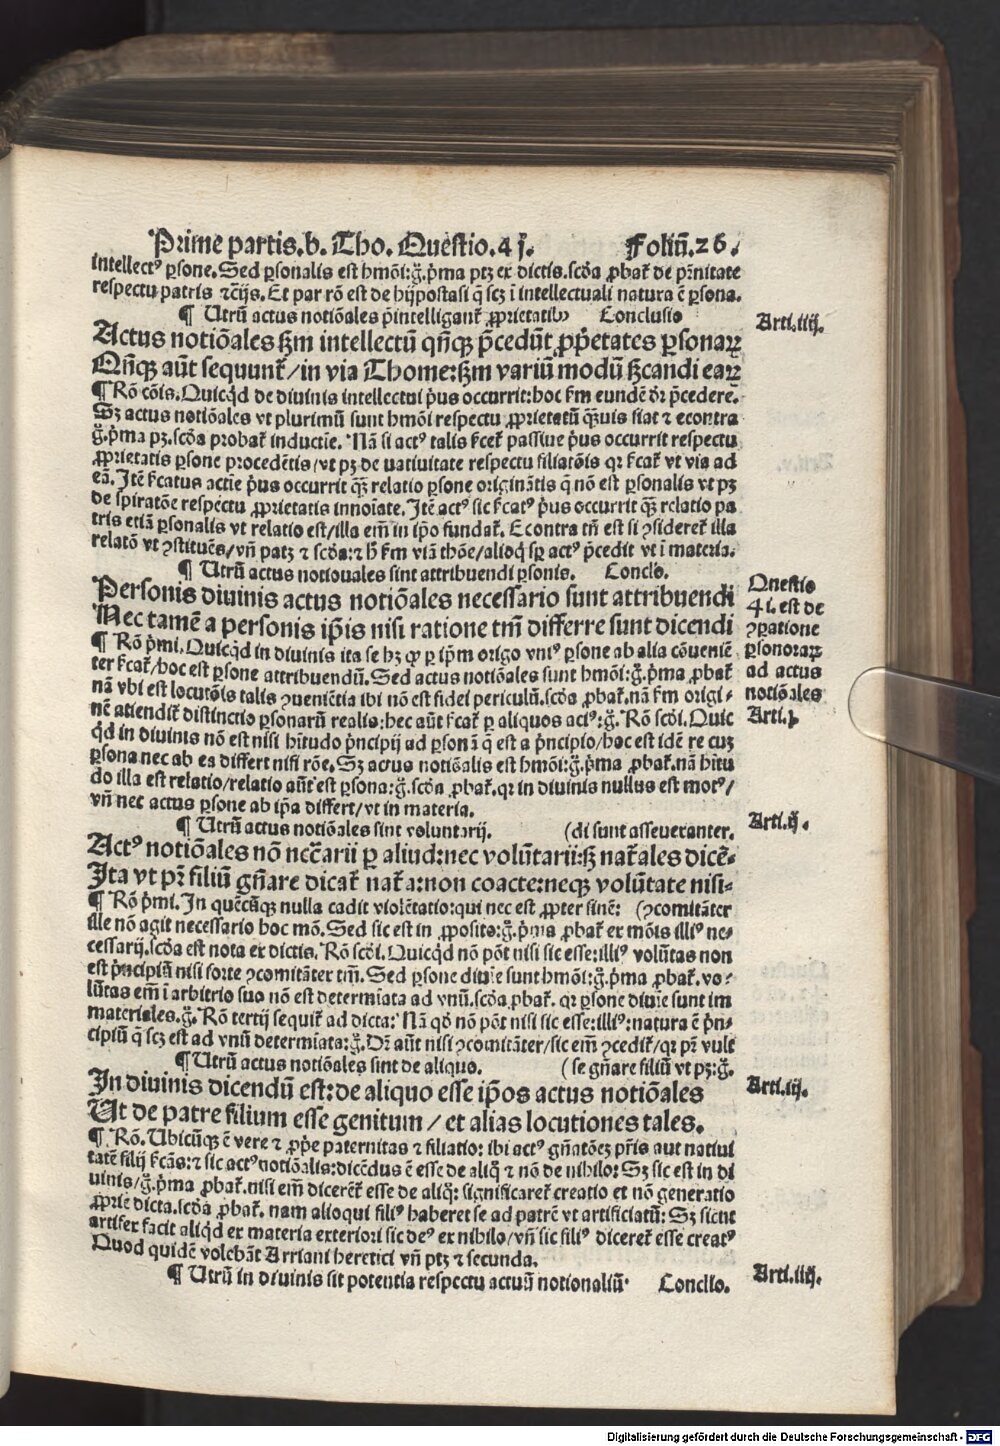 Prime partis.b. Tho. Questio.4 j. Foliū.26.
intellectꝰ ꝑsone. Sed ꝑsonalis est hmōi:g̃.p̃ma ptꝫ ex dictis.scḋa ꝓbat̃ de p̃nitate
respectu patris ⁊c̃ijs. Et par rō est de hijpostasi q̃ scꝫ ī intellectuali natura ē ꝑsona.
¶ Utrū actus notiōales p̃intelligant̃ ꝓprietatibꝰ Conclusio
Arti.iiij.
Actus notiōales ẞm intellectū qñqꝫ p̃cedūt ꝓp̃etates ꝑsonaꝝ
Qñqꝫ aūt sequunt̃/in via Thome:ẞm variū modū ẞcandi eaꝝ
¶ Rō cōis.Quicq̇d de diuinis intellectui p̃us occurrit:hoc ẞm eundē dr̃ p̃cedere.
Sꝫ actus notiōales vt plurimū sunt hmōi respectu ꝓprietatū q̃uis fiat ⁊ econtra
g̃.p̃ma pꝫ.scḋa probat̃ inductiẽ. Nā si actꝰ talis ẞcet̃ passiue p̃us occurrit respectu
ꝓprietatis ꝑsone procedētis/vt pꝫ de natiuitate respectu filiatōis qr ẞcat̃ vt via ad
eā. Itē ẞcatus actiē p̃us occurrit q̃ꝫ relatio ꝑsone originātis q̃ nō est ꝑsonalis vt pꝫ
de spiratōe respectu ꝓprietatis innoīate. Itē actꝰ sic ẞcatꝰ p̃us occurrit q̃ꝫ relatio pa
tris etiā ꝑsonalis vt relatio est/illa em̃ in ip̃o fundat̃. Econtra tñ est si ꝯsideret̃ illa
relatō vt ꝯstituēs/vñ patꝫ ⁊ scḋa:⁊ h̃ ẞm viā thōe/alioq̇ sp̃ actꝰ p̃cedit vt ī materia.
¶ Utrū actus notionales sint attribuendi ꝑsonis. Conclo.
Questio
4 i. est de
ꝯꝑatione
ꝑsonoraꝝ
ad actus
notiōales
Arti.j.
Personis diuinis actus notiōales necessario sunt attribuendi
Nec tamē a personis ip̃is nisi ratione tm̃ differre sunt dicendi
¶ Rō p̃mi. Quicq̇d in diuinis ita se hꝫ ꝙ ꝑ ip̃m origo vniꝰ ꝑsone ab alia cōueniē
ter ẞcat̃/hoc est ꝑsone attribuendū. Sed actus notiōales sunt hmōi:g̃.p̃ma ꝓbat̃
nā vbi est locutōis talis ꝯueniētia ibi nō est fidei periculū.scḋa ꝓbat̃.nā ẞm origi-
nē attendit̃ distinctio ꝑsonarū realis:hec aūt ẞcat̃ ꝑ aliquos actꝰ:g̃. Rō scḋi. Quic
q̇d in diuinis nō est nisi h̃itudo p̃ncipij ad ꝑsonā q̃ est a p̃ncipio/hoc est idē re cuꝫ
ꝑsona nec ab ea differt nisi rōe. Sꝫ actus notiōalis est hmōi:g̃.p̃ma ꝓbat̃.nā h̃itu
do illa est relatio/relatio aūt est ꝑsona:g̃.scḋa ꝓbat̃.qr in diuinis nullus est motꝰ/
vñ nec actus ꝑsone ab ip̃a differt/vt in materia.
¶ Utrū actus notiōales sint voluntarij. (di sunt asseueranter.
Arti.ij.
Actꝰ notiōales nō nec̃arii ꝑ aliud:nec volūtarii:ẞ nat̃ales dicē-
Ita vt pr̃ filiū gñare dicat̃ nat̃a:non coacte:neqꝫ volūtate nisi-
¶ Rō p̃mi. In quēcūqꝫ nulla cadit violētatio:qui nec est ꝓpter finē: (ꝯcomitāter
ille nō agit necessario hoc mō. Sed sic est in ꝓposito:g̃.p̃ma ꝓbat̃ ex mōis illiꝰ ne-
cessarij.scḋa est nota ex dictis. Rō scḋi. Quicq̇d nō pōt nisi sic esse:illiꝰ volūtas non
est p̃ncipiū nisi forte ꝯcomitāter tm̃. Sed ꝑsone diuīe sunt hmōi:g̃.p̃ma ꝓbat̃. vo-
lūtas em̃ ī arbitrio suo nō est determiata ad vnū.scḋa ꝓbat̃. qr ꝑsone diuīe sunt im
materiales.g̃. Rō tertij sequit̃ ad dicta: Nā qḋ nō pōt nisi sic esse:illiꝰ:natura ē p̃n-
cipiū q̃ scꝫ est ad vnū determīata:g̃.Dr̃ aūt nisi ꝯcomitāter/sic em̃ ꝯcedit̃/qr pr̃ vult
¶Utrū actus notiōales sint de aliquo. (se gñare filiū vt pꝫ:g̃.
Arti.iij.
In diuinis dicendū est:de aliquo esse ip̃os actus notiōales
Ut de patre filium esse genitum/et alias locutiones tales.
¶ Rō. Ubicūqꝫ ē vere ⁊ ꝓp̃e paternitas ⁊ filiatio: ibi actꝰ gñatōeꝫ p̃ris aut natiui
tatē filij ẞcās:⁊ sic actꝰ notiōalis:dicēdus ē esse de aliq̊ ⁊ nō de nihilo: Sꝫ sic est in di
uinis/g̃.p̃ma ꝓbat̃.nisi em̃ diceret̃ esse de aliq̊: significaret̃ creatio et nō generatio
ꝓprie dicta.scḋa ꝓbat̃. nam alioqui filiꝰ haberet se ad patrē vt artificiatū: Sꝫ sicut
artifex facit aliq̇d ex materia exteriori sic deꝰ ex nihilo/vñ sic filiꝰ diceret̃ esse creatꝰ
Quod quidē volebāt Arriani heretici vñ ptꝫ ⁊ secunda.
¶ Utrū in diuinis sit potentia respectu actuū notionaliū. Conclo.
Arti.iiij.
Digitalisierung gefördert durch die Deutsche Forschungsgemeinschaft - DFG